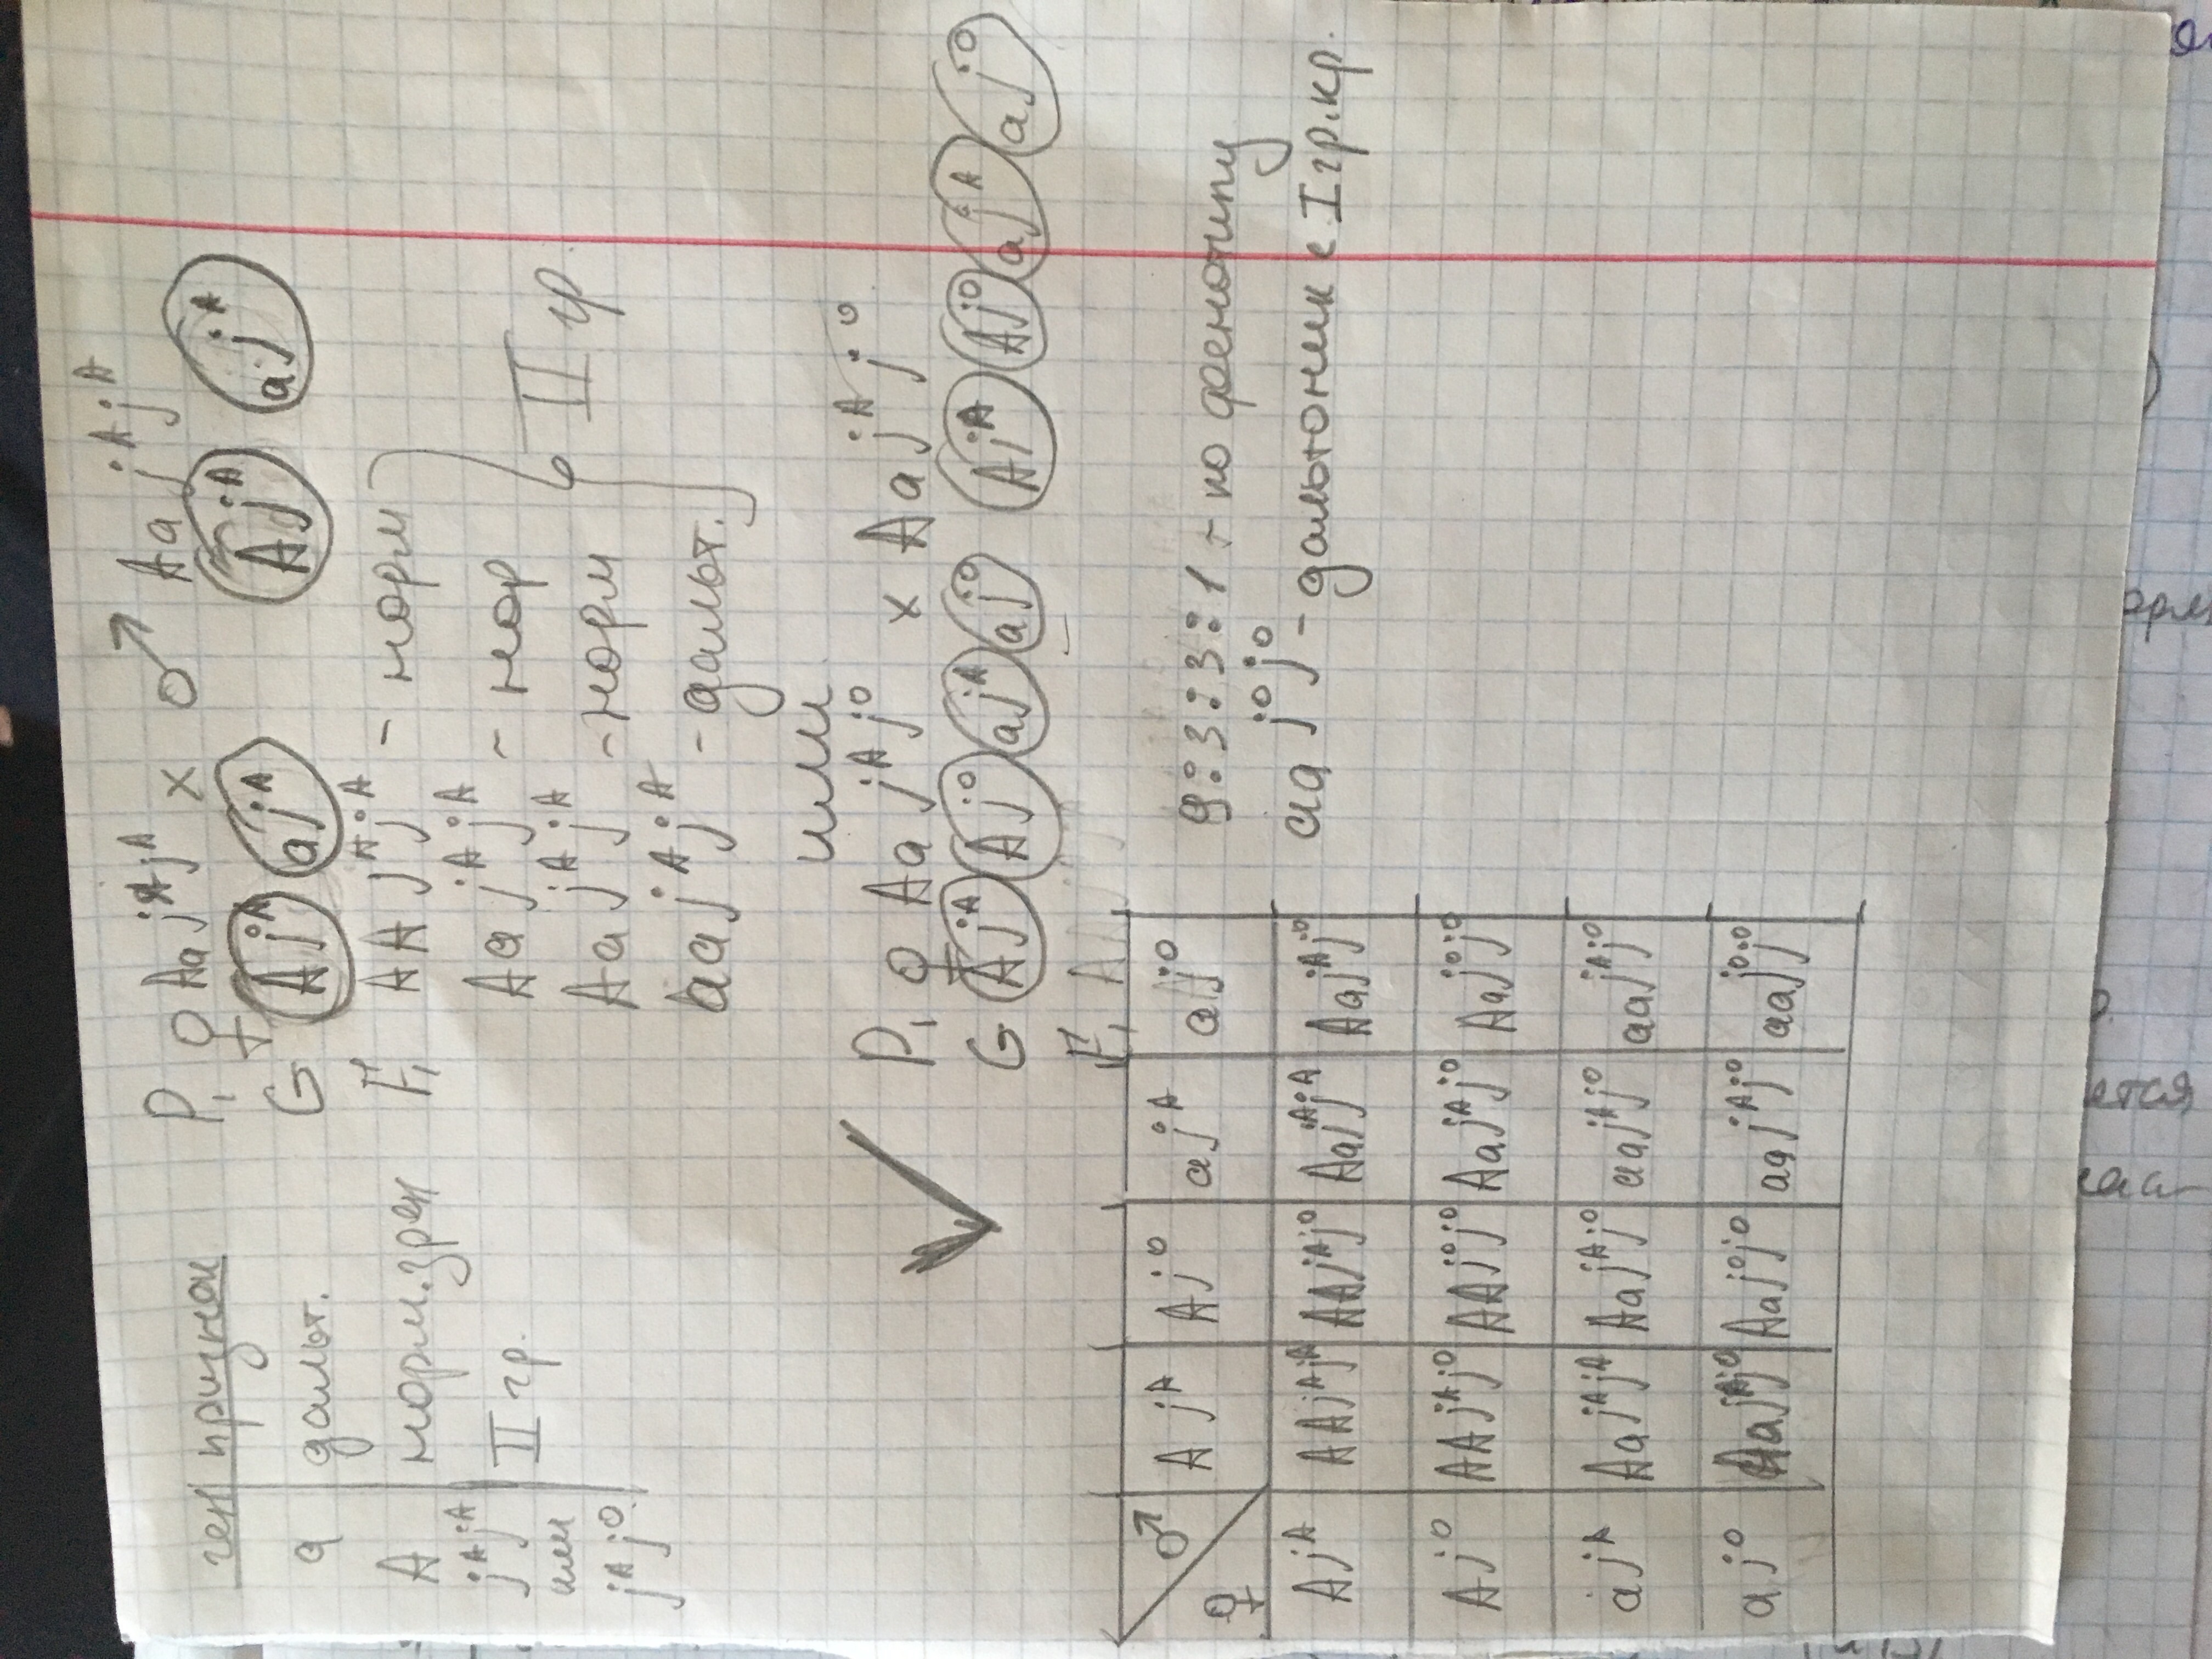 ген признак
a дальт.
A норм. зрен
jᴬjᴬ II гр.
или
jᴬj⁰
P₁ ♀ Aa jᴬjᴬ × ♂ Aa jᴬjᴬ
G AjᴬajᴬAjᴬ ajᴬ
F₁ AA jᴬjᴬ - норм
Aa jᴬjᴬ - нор
Aa jᴬjᴬ - норм
aa jᴬjᴬ - дальт.
II гр
или
P₁ ♀ Aa jᴬj⁰ × Aa jᴬj⁰
G Ajᴬ Aj⁰ ajᴬ aj⁰ Ajᴬ Aj⁰ ajᴬ aj⁰
F₁
♀ ♂ Ajᴬ Aj⁰ ajᴬ aj⁰
Ajᴬ AAjᴬjᴬ AAjᴬj⁰ Aajᴬjᴬ Aajᴬj⁰
Aj⁰ AAjᴬj⁰ AAj⁰j⁰ Aajᴬj⁰ Aaj⁰j⁰
ajᴬ Aajᴬjᴬ Aajᴬj⁰ aajᴬj⁰ aajᴬj⁰
aj⁰ Aajᴬj⁰ Aaj⁰j⁰ aajᴬj⁰ aaj⁰j⁰
9:3:3:1 - по фенотипу
aa j⁰j⁰ - дальтоник с I гр.кр.